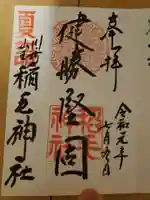 奉拝
令和元年
七月
健勝堅固
夏詣
稲毛神社